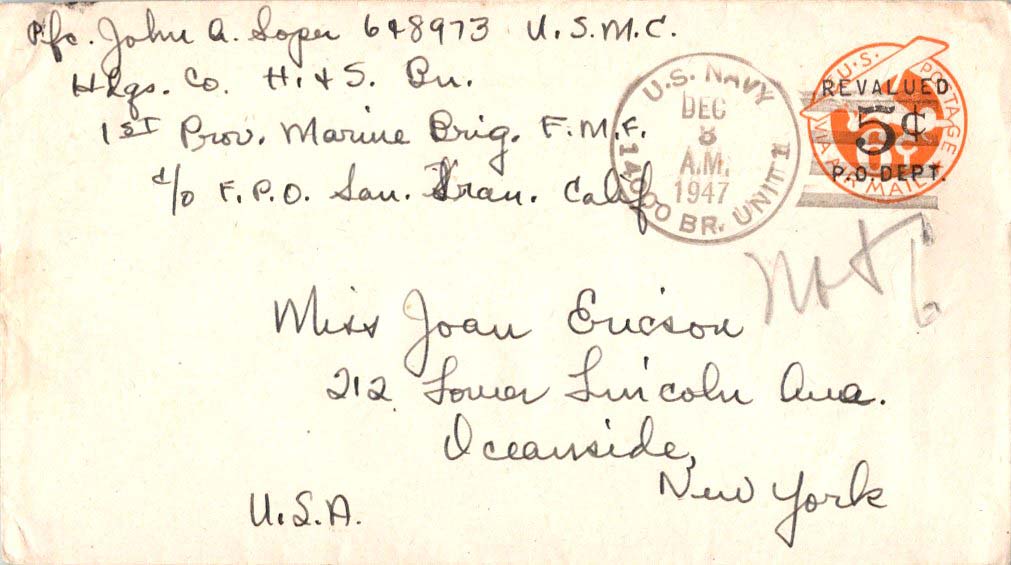 Pfc. John A. Soper 648973 U.S.M.C.
Hdqs. Co. H. & S. Bn.
1st Prov. Marine Brig. F.M.F.
c/o F.P.O. San. Fran. Calif
U.S. NAVY
DEC
8
A.M.
1947
BR. UNIT 1
U.S. POSTAGE
REVALUED
5¢
P.O. DEPT.
VIA AIR MAIL
Miss Joan Ericson
212 Lower Lincoln Ave.
Oceanside,
New York
U.S.A.